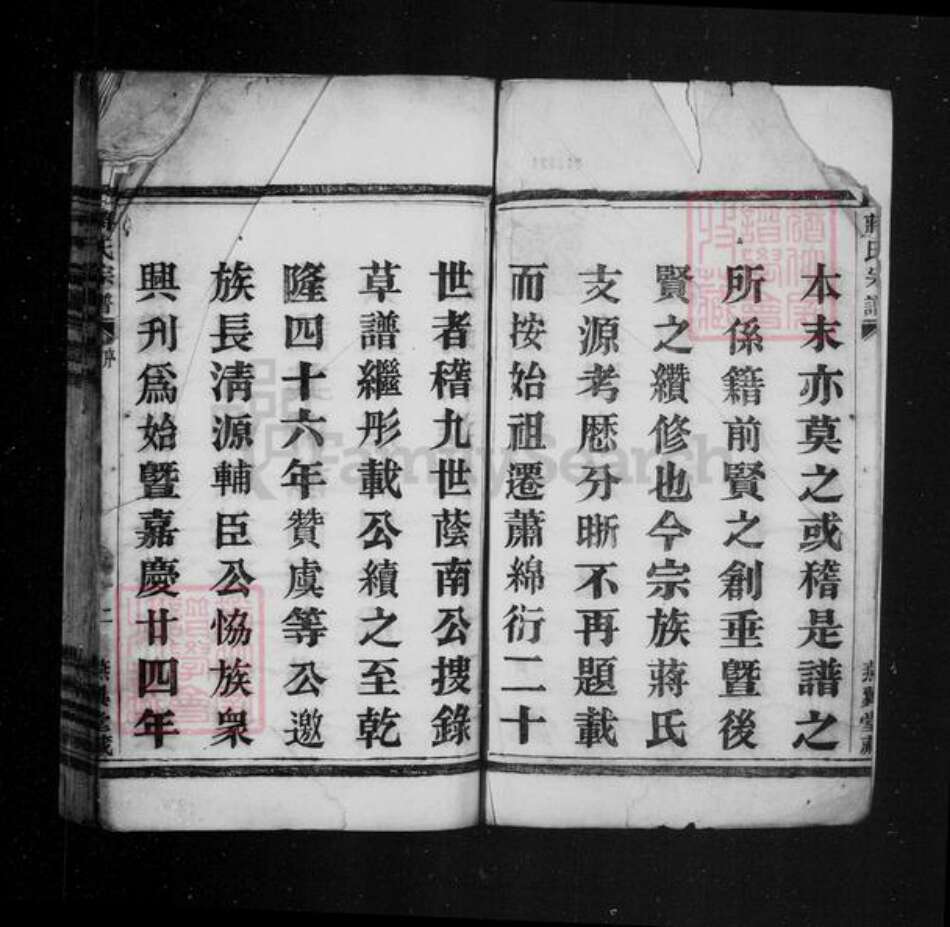 蔣氏宗譜
本末亦莫之或稽是譜之
所係籍前賢之創垂曁後
賢之纘修也今宗族蔣氏
支源考歷分晣不再題載
而按始祖遷蕭綿衍二十
世者稽九世蔭南公搜錄
草譜繼彤載公續之至乾
隆四十六年贊虞等公邀
族長淸源輔臣公恊族衆
興刋爲始曁嘉慶廿四年
氏宗譜
序
FamilySearch